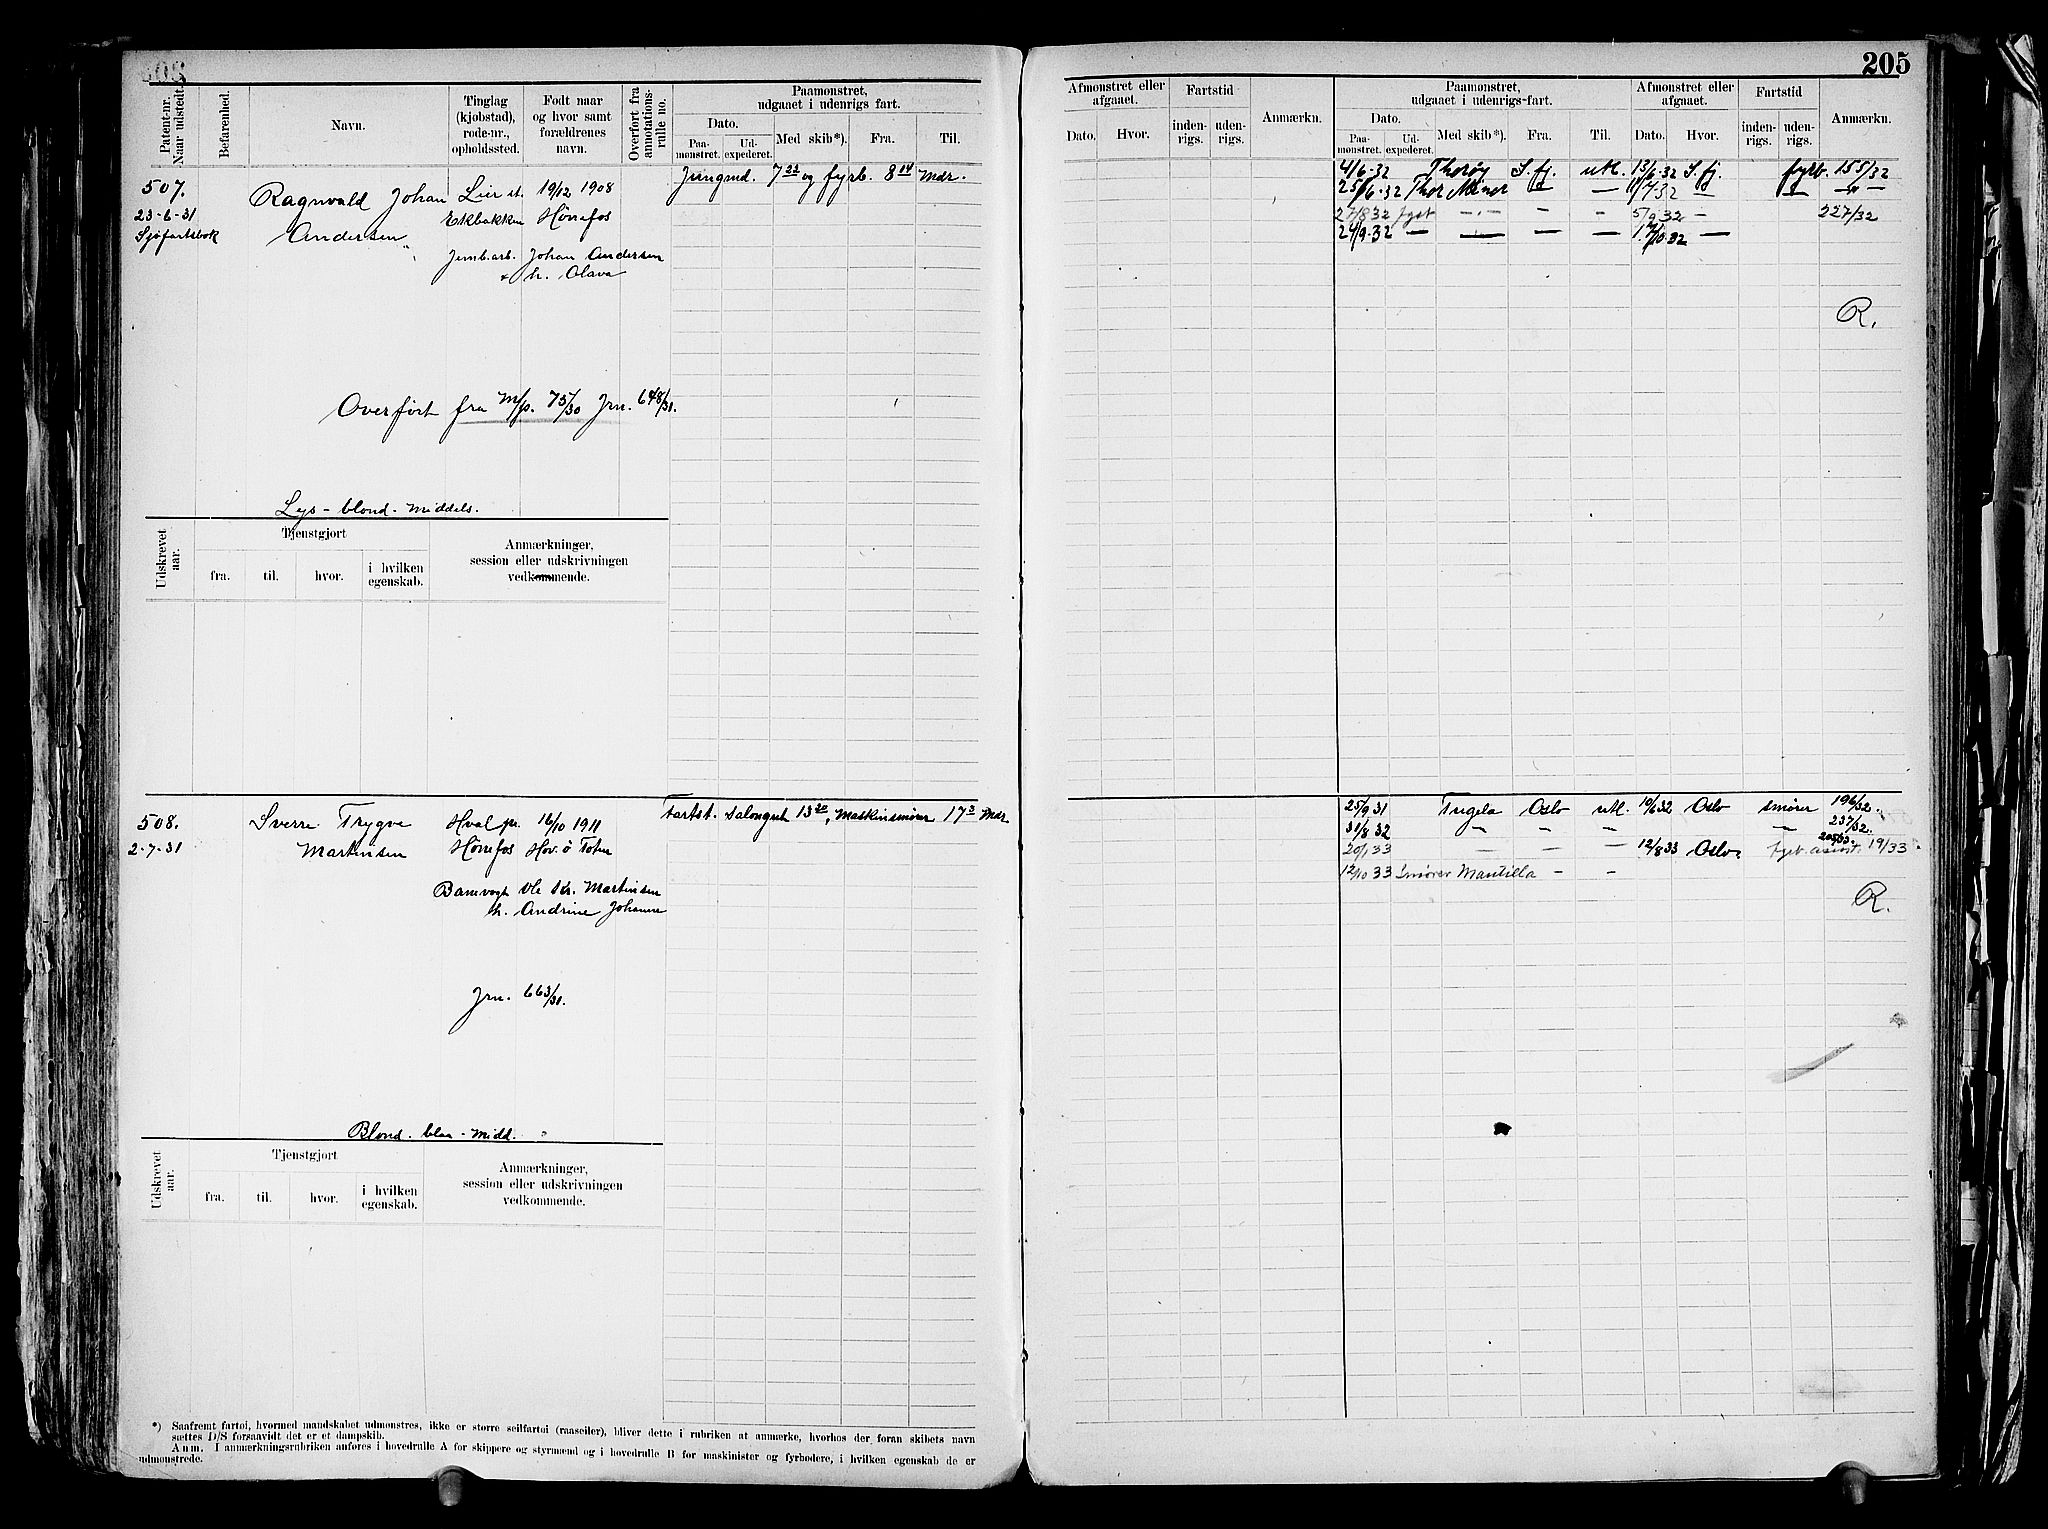 205
Patent-nr. Naar udstedt.
Befarenhed.
Navn.
Tinglag (kjøbstad), rode-nr., opholdssted.
Født naar og hvor samt forældrenes navn.
Overført fra annotations-rulle no.
Paamønstret, udgaaet i udenrigs fart.
Dato.
Paa-mønstret.
Ud-expederet.
Med skib*).
Fra.
Til.
Afmønstret eller afgaaet.
Dato.
Hvor.
Fartstid
inden-rigs.
uden-rigs.
Anmærkn.
Paamønstret, udgaaet i udenrigs-fart.
Dato.
Paa-mønstret.
Ud-expederet.
Med skib*).
Fra.
Til.
Afmønstret eller afgaaet.
Dato.
Hvor.
Fartstid
inden-rigs.
uden-rigs.
Anmærkn.
507. Ragnvald Johan Lier st. 19/12 1908 Jungmd. 7 22 og fyrb. 8 14 Mdr.
23-6-31 Andersen Ekbakken Hønefos
Sjøfartsbok
Jernb.arb. Johan Andersen
& h. Olava
4/6-32 Thorøy S.fj. utl. 13/6-32 S.fj. fyrb. 155/32
25/6-32 Thor — — 11/7 32 — — " —
27/8 32 fyst — — — 5/9 32 — 227/32
24/9-32 — — — — 10-32 —
R.
Overført fra M/p. 75/30 Jrn. 648/31.
Lys - blond - Middels.
Udskrevet aar.
Tjenstgjort
fra.
til.
hvor.
i hvilken egenskab.
Anmærkninger, session eller udskrivningen vedkommende.
508. Sverre Trygve Hval pr. 16/10 1911 Fartst. Salongut 13 20, Maskinsmører 17 3 Mdr
2-7-31 Martinsen Hønefos Hov. Ø Toten
Banevogt Ole Kr. Martinsen
h. Andrine Johanne
25/9 31 Tugela Oslo utl. 10/6 32 Oslo smører 196/32.
31/8 32 — — — 237/32.
20/1 33 — — — 12/8 33 Oslo. 19/33
12/10 33 Smører Mantilla — —
R.
Jrn. 663/31.
Blond. blaa - Midd.
Udskrevet aar.
Tjenstgjort
fra.
til.
hvor.
i hvilken egenskab.
Anmærkninger, session eller udskrivningen vedkommende.
*) Saafremt fartøi, hvormed mandskabet udmønstres, ikke er større seilfartøi (raaseiler), bliver dette i rubriken at anmærke, hvorhos der foran skibets navn
sættes D/S forsaavidt det er et dampskib.
Anm. I anmærkningsrubriken anføres i hovedrulle A for skippere og styrmænd og i hovedrulle B for maskinister og fyrbødere, i hvilken egenskab de er
udmønstrede.